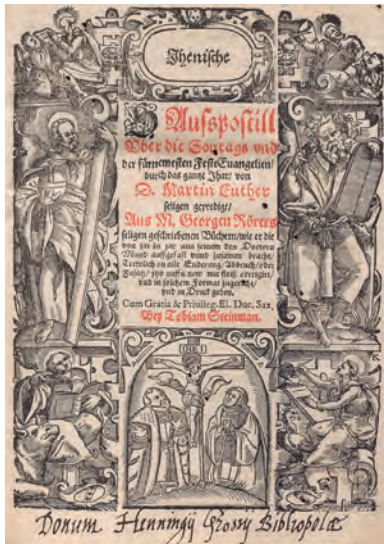 Jhenische
Hauspostill
Vber die Sontags vnd
der fürnemesten Feste Euangelien/
durch das gantze Jhar/ von
D. Martin Luther
seligen geprediget/
Aus M. Georgen Rörers
seligen geschriebenen Büchern/ wie er die
von jar zu jar aus seinem des Doctors
Mund auffgefast vnnd zusamen bracht/
Trewlich on alle Enderung/ Abbruch/ oder
Zusatz/ jtzo auffs new mit fleis corrigirt/
vnd in solchem Format zugericht/
vnd in Druck geben.
Cum Gratia & Priuileg. El. Duc. Sax.
Bey Tobiam Steinman.
INRI
Donum Henningij Grossij Bibliopolæ